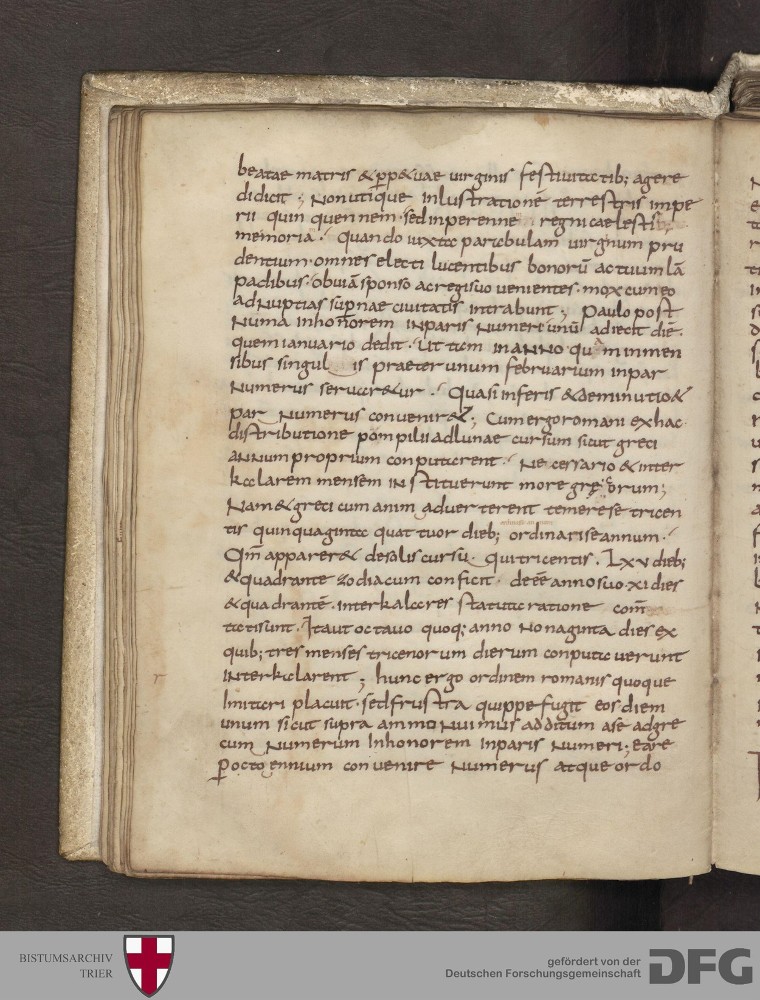 beatae matris & ꝑp&uae uirginis festiuitatib; agere
didicit ; Nonutique inlustratione terrestris impe
rii quin quennem · sed inperenne regni caelestis
memoria · Quando iuxta parabulam uirginum pru
dentium · omnes electi lucentibus bonorū actuum lā
padibus · obuiā sponso ac regi suo uenientes · mox cum eo
ad Nuptias suꝑnae ciuitatis intrabunt ; Paulo post
Numa inhonorem inparis Numeri unū adiecit diē ·
quem ianuario dedit · Ut tam in anno quam in men
sibus singulis praeter unum februarium inpar
Numerus seruar&ur · Quasi inferis & deminutio &
par Numerus conuenir& ; Cum ergo romani ex hac
distributione pompilii ad lunae cursum sicut greci
annum proprium conputarent · Necessario & inter
kalarem mensem instituerunt more grecorum ;
Nam & greci cum animaduerterent temere se tricen
tis quinquaginta quattuor dieb; ordinari se annum ·
Qm̄ apparer& de solis cursu · qui tricentis · Lxv dieb;
& quadrante zodiacum conficit · deēe anno suo · xi dies
& quadrantē · interkalares statuta ratione com̄
tati sunt · Ita ut octauo quoq; anno Nonaginta dies ex
quib; tres menses tricenorum dierum conputauerunt
interkalarent ; hunc ergo ordinem romanis quoque
Imitari placuit · sed frustra quippe fugit eos diem
unum sicut supra ammonuimus additum a se ad gre
cum Numerum Inhonorem inparis Numeri ; eare
ꝑ octoennium conuenire Numerus atque ordo
BISTUMSARCHIV
TRIER
gefördert von der
Deutschen Forschungsgemeinschaft
DFG